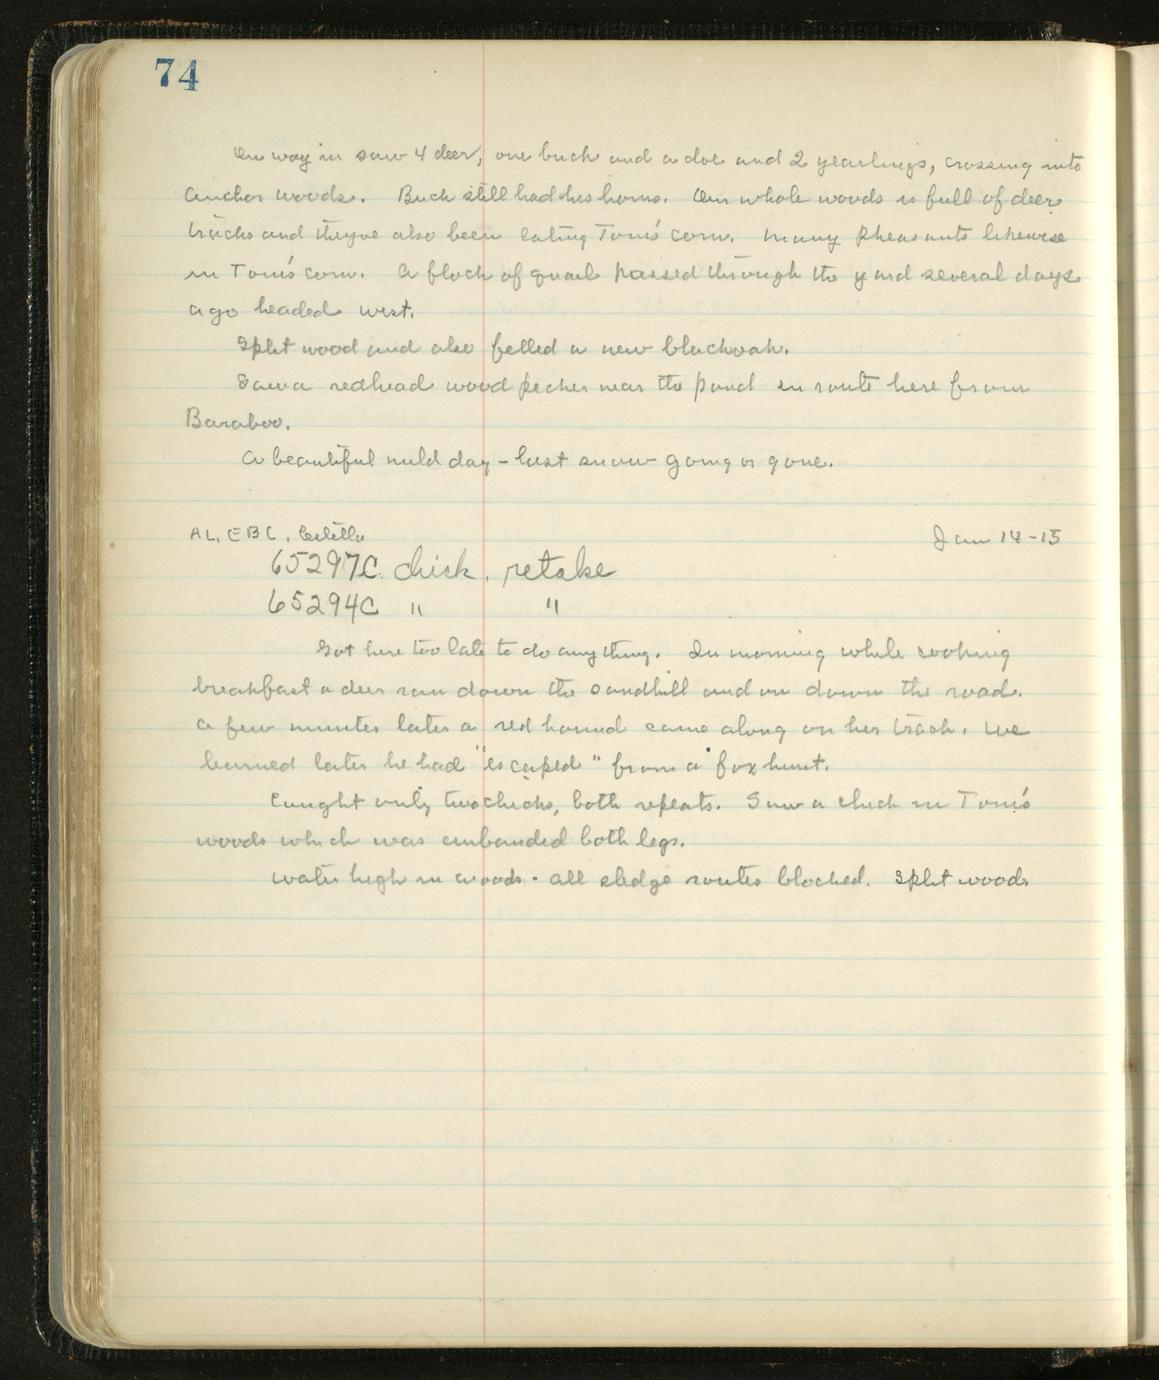 74
On way in saw 4 deer, one buck and a doe and 2 yearlings, crossing into
Anchor woods. Buck still had his horns. Our whole woods is full of deer
tracks and theyve also been eating Tom's corn. Many pheasants likewise
in Tom's corn. A flock of quail passed through the yard several days
ago headed west.
Split wood and also felled a new blackoak.
Saw a redhead woodpecker near the pond en route here from
Baraboo.
A beautiful mild day - last snow going or gone.
AL, EBL, Estella
Jan 14-15
65297C chick, retake
65294C " "
Got here too late to do anything. In morning while cooking
breakfast a deer ran down the sandhill and on down the road.
A few minutes later a red hound came along on her track. We
learned later he had "escaped" from a fox hunt.
Caught only two chicks, both repeats. Saw a chick in Tom's
woods which was unbanded both legs.
Water high in woods - all sledge routes blocked. Split wood.